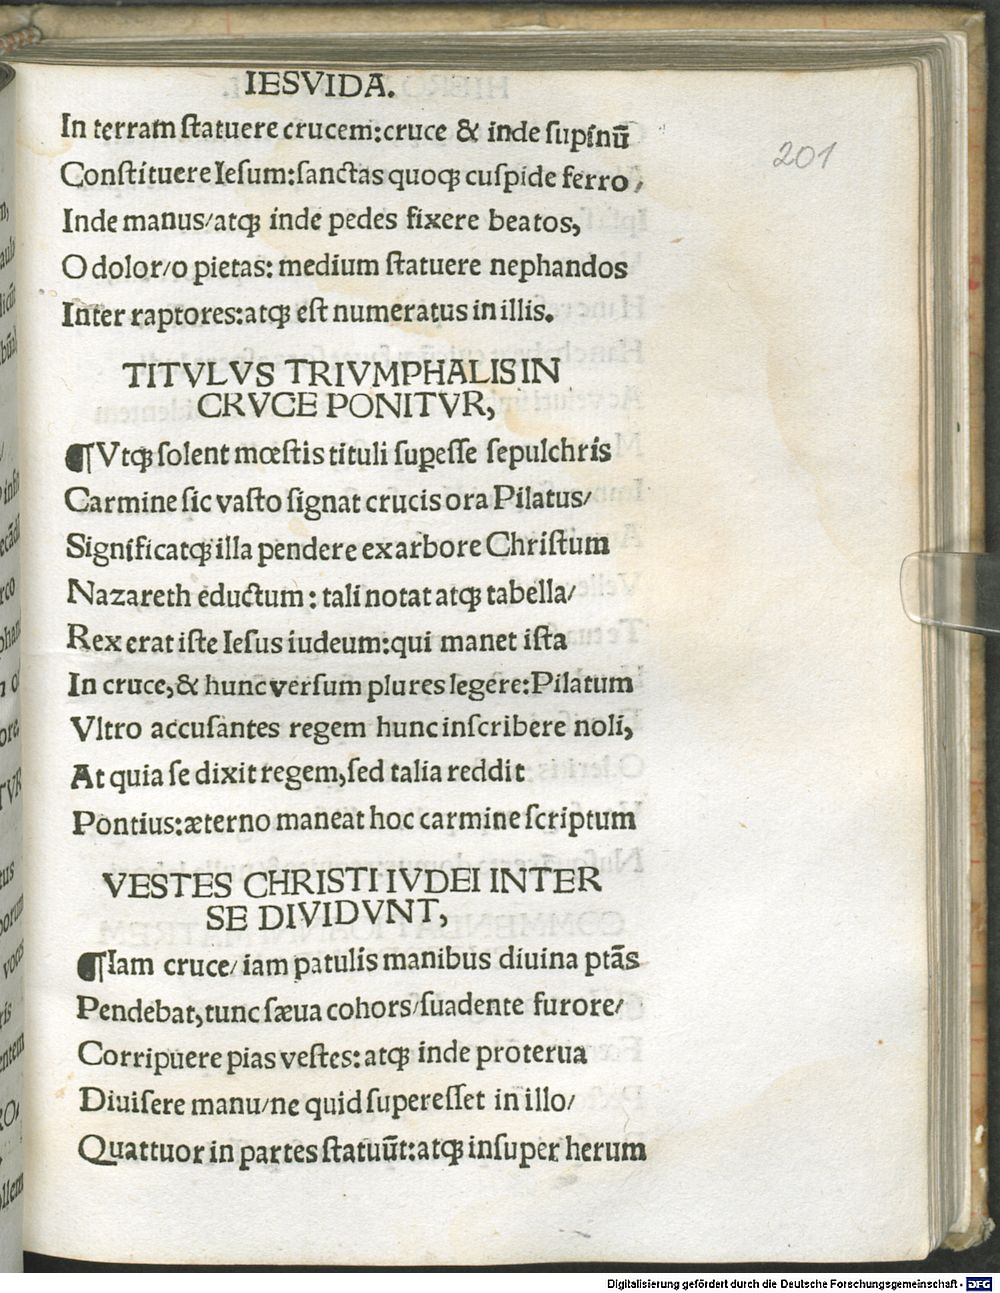 IESVIDA.
201
In terram ſtatuere crucem:cruce & inde ſupſnū
Conſtituere Ieſum:ſanctas quoqꝫ cuſpide ferro,
Inde manus/atqꝫ inde pedes fixere beatos,
O dolor/o pietas: medium ſtatuere nephandos
Inter raptores:atqꝫ eſt numeratus in illis.
TITVLVS TRIVMPHALIS IN
CRVCE PONITVR,
¶Vtqꝫ ſolent mœſtis tituli ſuꝑeſſe ſepulchris
Carmine ſic vaſto ſignat crucis ora Pilatus/
Significatqꝫ illa pendere ex arbore Chriſtum
Nazareth eductum: tali notat atqꝫ tabella/
Rex erat iſte Ieſus iudeum:qui manet iſta
In cruce,& hunc verſum plures legere:Pilatum
Vltro accuſantes regem hunc inſcribere noli,
At quia ſe dixit regem,ſed talia reddit
Pontius:æterno maneat hoc carmine ſcriptum
VESTES CHRISTI IVDEI INTER
SE DIVIDVNT,
¶Iam cruce/iam patulis manibus diuina ptās
Pendebat,tunc ſæua cohors/ſuadente furore/
Corripuere pias veſtes: atqꝫ inde proterua
Diuiſere manu/ne quid ſupereſſet in illo/
Quattuor in partes ſtatuūt:atqꝫ inſuper herum
Digitalisierung gefördert durch die Deutsche Forschungsgemeinschaft - DFG